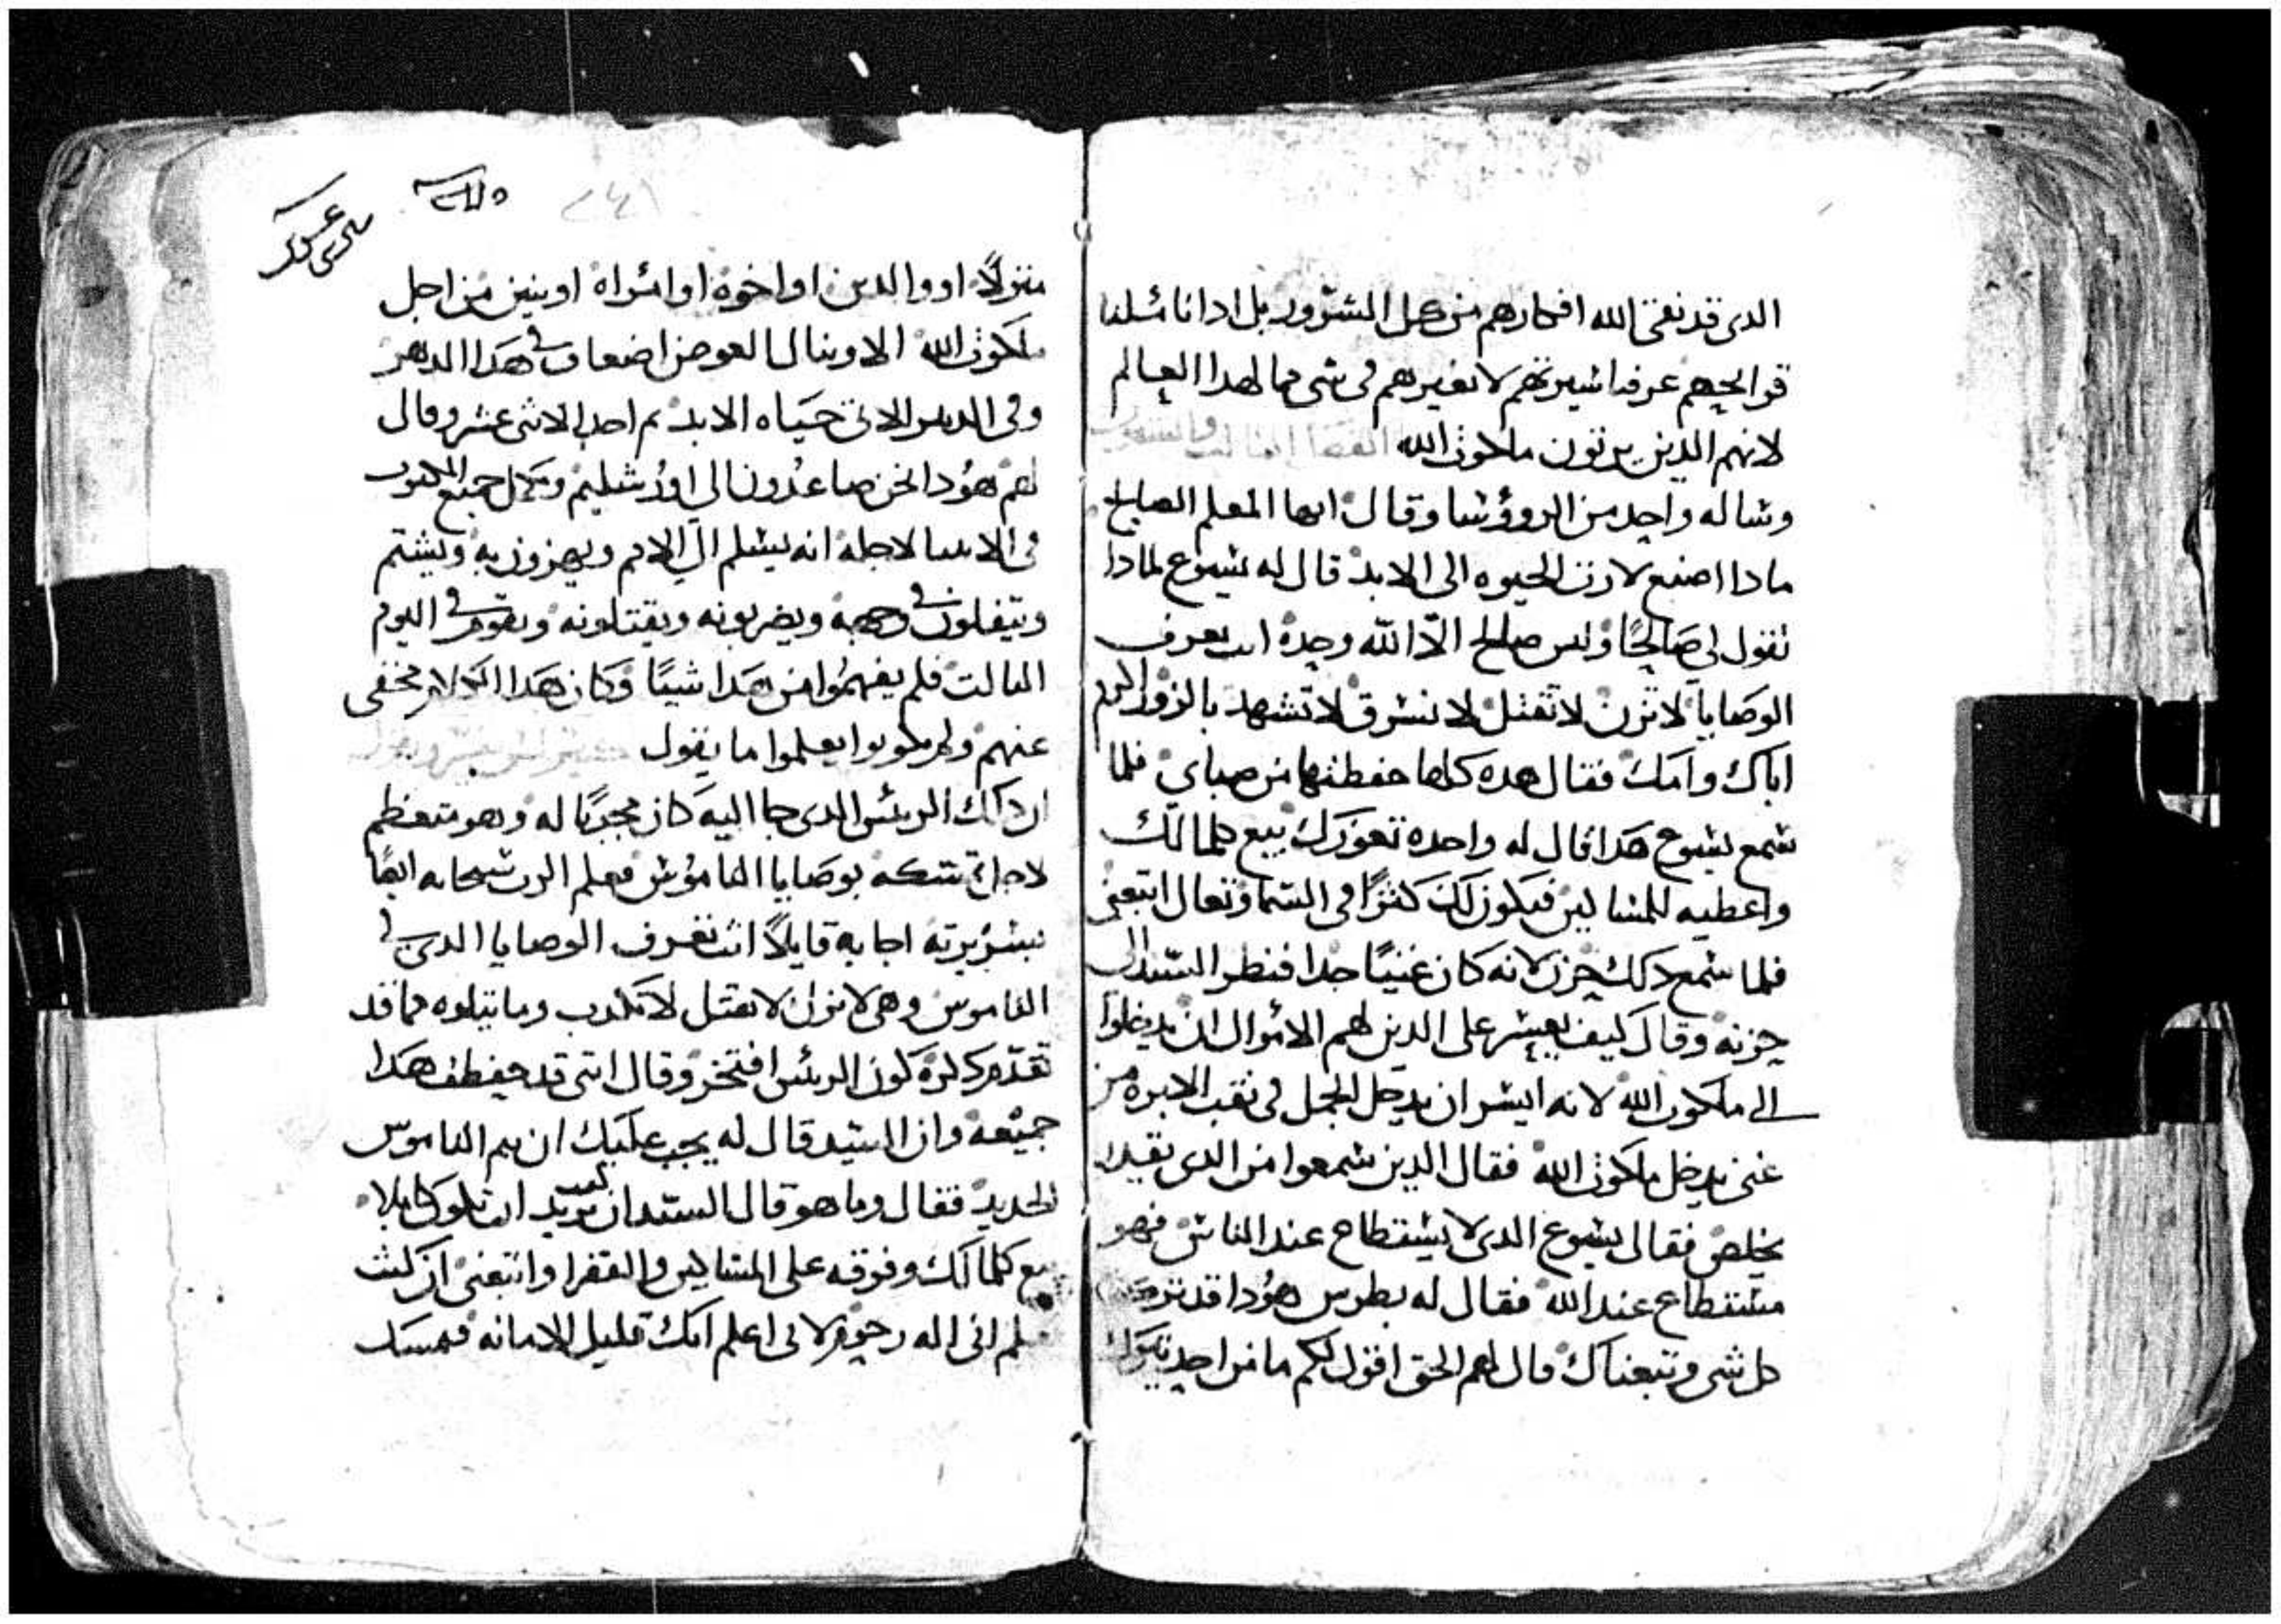 الدى قد نقى الله افكارهم من كل الشرور بل ادا ناسلنا
قوايحهم عرفنا سيرتهم لا تغيرهم فى شى مما لهدا العالم
لانهم الدين يرتون ملكوت الله
وساله واحد من الرووسا وقال ايها المعلم الصالح
مادا اصنع لارت الحيوه الى الابد قال له يسوع لمادا
تقول لي صالحًا وليس صالح الّا الله وحده انت تعرف
الوصايا لا تزن لا تقتل لا تسرق لا تشهد بالزور اكرم
اباك وامك فقال هده كلها حفظتها من صباي فلما
سمع يسوع هدا قال له واحده تعوزك بيع كلما لك
واعطيه للمساكين فيكون لك كنزًا فى السما وتعال اتبعنى
فلما سمع دلك حزن لانه كان غنيًا جدا فنظر السيد الى
حزنه وقال كيف يعسر على الدين لهم الاموال ان يدخلوا
الى ملكوت الله لانه ايسر ان يدخل الجمل فى تقب الابره من
غنى يدخل ملكوت الله فقال الدين سمعوا من الدى يقدر
يخلص فقال يسوع الدى لا يستطاع عند الناس فهو
مستطاع عند الله فقال له بطرس هودا قد تركنا
كل شى وتبعناك قال لهم الحق اقول لكم ما من احد يترك
منزلًا او والدين او اخوة او امراة او بنين من اجل
ملكوت الله الا وينال العوض اضعاف فى هدا الدهر
وفى الدهر الاتى حياه الابد تم اخد الاثنى عشر وقال
لهم هودا نحن صاعدون الي اورشليم ويكمل جميع المكتوب
فى الانبيا لاجله انه يسلم الي الامم ويهزون به ويشتم
ويتفلون فى وجهه ويضربونه ويقتلونه ويقوم فى اليوم
التالت فلم يفهموا من هدا شييًا وكان هدا الكلام مخفى
عنهم ولم يكونوا يعلموا ما يقول
ان دلك الريس الدى جا اليه كان مجربًا له وهو متعظم
لاجل تمسكه بوصايا الناموس فعلم الرب سبحانه ايضًا
بسريرته اجابه قايلًا انت تعرف الوصايا الدى فى
الناموس وهى لا تزن لا تقتل لا تكدب وما يتلوه مما قد
تقدّم دكره كون الريس افتخر وقال اننى قد حفظت هدا
جميعه وان السيد قال له يجب عليك ان تمم الناموس
الجديد فقال وما هو قال السيد ان كنت تريد ان تكون كاملا
بيع كلما لك وفرقه على المساكين والفقرا واتبعنى ان كنت
تعلم انى اله رحوم لانى اعلم انك قليل الامانه